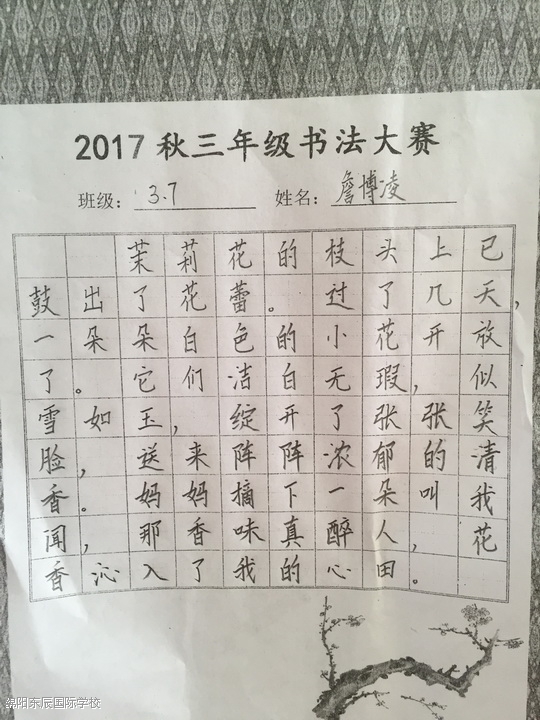 2017秋三年级书法大赛
班级：3.7 姓名：詹博凌
茉莉花的枝头上已
鼓出了花蕾。过了几天，
一朵朵白色的小花开放
了。它们洁白无瑕，似
雪如玉，绽开了张张笑
脸，送来阵阵浓郁的清
香。妈妈摘下一朵叫我
闻，那香味真醉人，花
香沁入了我的心田。
绵阳东辰国际学校